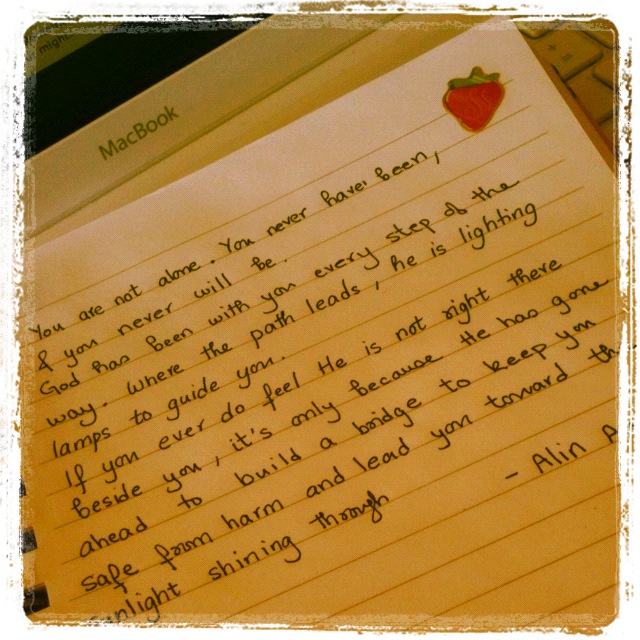 might
MacBook
You are not alone. You never have been,
& you never will be.
God has been with you every step of the
way. Where the path leads, he is lighting
lamps to guide you.
If you ever do feel He is not right there
beside you, it's only because He has gone
ahead to build a bridge to keep you
safe from harm and lead you toward th
nlight shining through
- Alin A